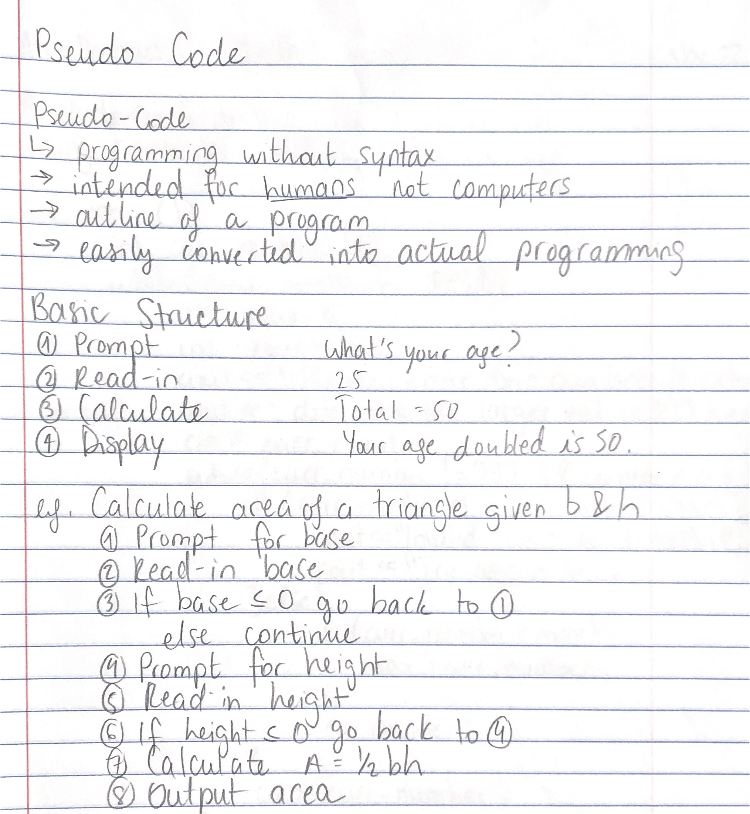 Pseudo Code
Pseudo-Code
↳ programming without syntax
→ intended for humans not computers
→ outline of a program
→ easily converted into actual programming
Basic Structure
① Prompt What's your age?
② Read-in 25
③ Calculate Total = 50
④ Display Your age doubled is 50.
eg. Calculate area of a triangle given b & h
① Prompt for base
② Read-in base
③ If base ≤ 0 go back to ①
else continue
④ Prompt for height
⑤ Read-in height
⑥ If height ≤ 0 go back to ④
⑦ Calculate A = ½ bh
⑧ Output area